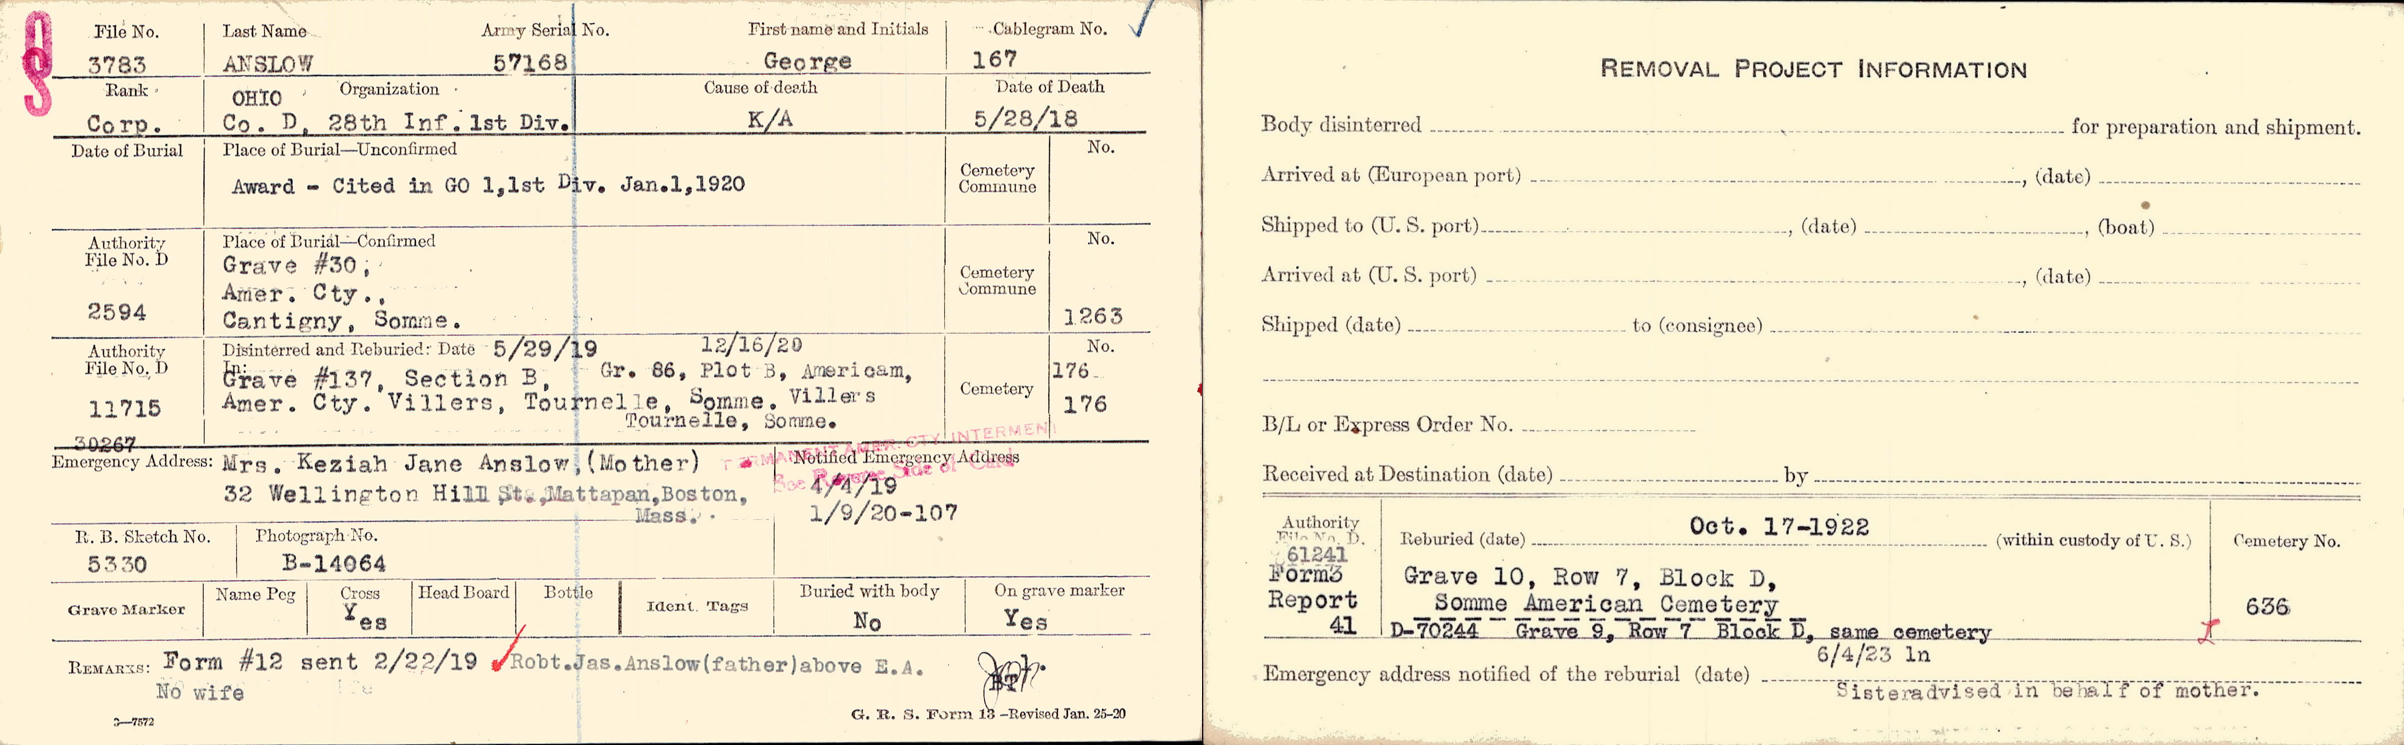 OS
File No.
Last Name
Army Serial No.
First name and Initials
Cablegram No.
3783
ANSLOW
57168
George
167
Rank
OHIO
Organization
Cause of death
Date of Death
Corp.
Co. D, 28th Inf. 1st Div.
K/A
5/28/18
Date of Burial
Place of Burial—Unconfirmed
No.
Award - Cited in GO 1,1st Div. Jan.1,1920
Cemetery
Commune
Authority
File No. D
2594
Place of Burial—Confirmed
No.
Grave #30,
Amer. Cty.,
Cantigny, Somme.
Cemetery
Commune
1263
Authority
File No. D
11715
30267
Disinterred and Reburied: Date 5/29/19
12/16/20
No.
In:
Grave #137, Section B,
Amer. Cty. Villers, Tournelle, Somme.
Gr. 86, Plot B, American,
Villers
Tournelle, Somme.
Cemetery
176
176
Emergency Address: Mrs. Keziah Jane Anslow,(Mother)
32 Wellington Hill St.,Mattapan,Boston,
Mass.
PERMANENT AMER. CTY. INTERMENT
See Reverse Side of Card
Notified Emergency Address
4/4/19
1/9/20-107
R. B. Sketch No.
Photograph No.
5330
B-14064
Grave Marker
Name Peg
Cross
Yes
Head Board
Bottle
Ident. Tags
Buried with body
No
On grave marker
Yes
REMARKS: Form #12 sent 2/22/19 Robt.Jas.Anslow(father)above E.A.
No wife
BT
3—7572
G. R. S. Form 13 —Revised Jan. 25-20
REMOVAL PROJECT INFORMATION
Body disinterred for preparation and shipment.
Arrived at (European port) , (date)
Shipped to (U. S. port) , (date) , (boat)
Arrived at (U. S. port) , (date)
Shipped (date) to (consignee)
B/L or Express Order No.
Received at Destination (date) by
Authority
File No. D.
61241
Form3
Report
41
Reburied (date) Oct. 17-1922 (within custody of U. S.)
Cemetery No.
Grave 10, Row 7, Block D,
Somme American Cemetery
636
D-70244 Grave 9, Row 7 Block D, same cemetery
6/4/23 ln
Emergency address notified of the reburial (date)
Sisteradvised in behalf of mother.